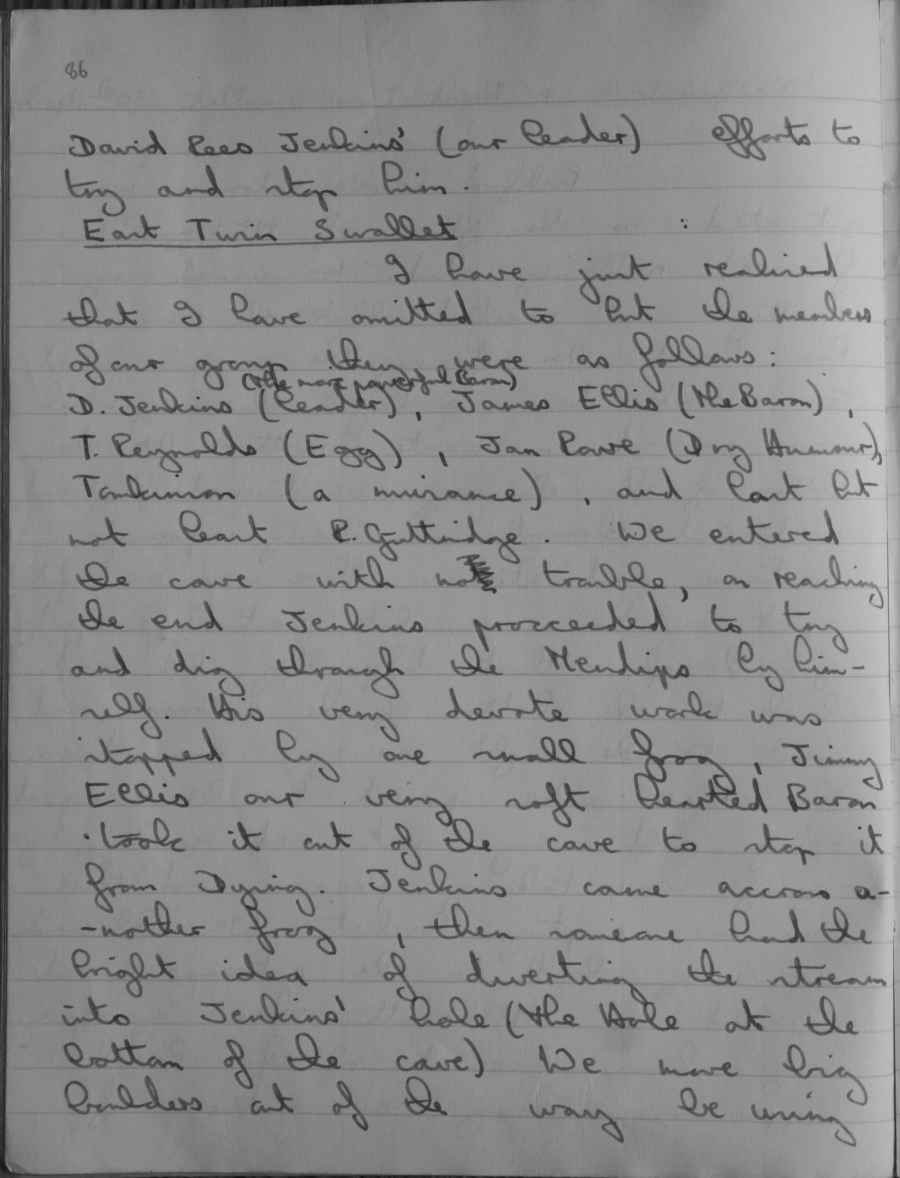 86
David Rees Jenkins' (our leader) efforts to
try and stop him.
East Twin Swallet :
I have just realised
that I have omitted to list the members
of our group they were as follows:
(the more powerful Baron)
D. Jenkins (leader), James Ellis (the Baron),
T. Reynolds (Egg), Jan Rowe (Dry Humour),
Tomkinson (a nuisance), and last but
not least R. Guttridge. We entered
the cave with no trouble, on reaching
the end Jenkins procceeded to try
and dig through the Mendips by him-
self. His very devote work was
stopped by one small frog, Jimmy
Ellis our very soft hearted Baron
took it out of the cave to stop it
from Dying. Jenkins came accross a-
-nother frog, then someone had the
bright idea of diverting the stream
into Jenkins' hole (the Hole at the
bottom of the cave) We move big
boulders out of the way be using